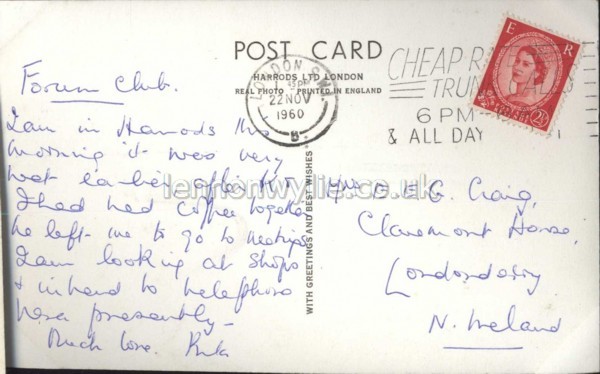 POST CARD
HARRODS LTD LONDON
REAL PHOTO PRINTED IN ENGLAND
LONDON S.W.1.
22 NOV
1960
B
CHEAP R
TRUN
6 PM
& ALL DAY
E R
2½
Forum Club.
I am in Harrods this
morning it was very
wet earlier after
I had had coffee together
he left me to go to meetings
I am looking at shops
& intend to telephone
presently -
Much love.
WITH GREETINGS AND BEST WISHES
E. G. Craig,
Claremont House,
Londonderry
N. Ireland
lennonwylie.co.uk